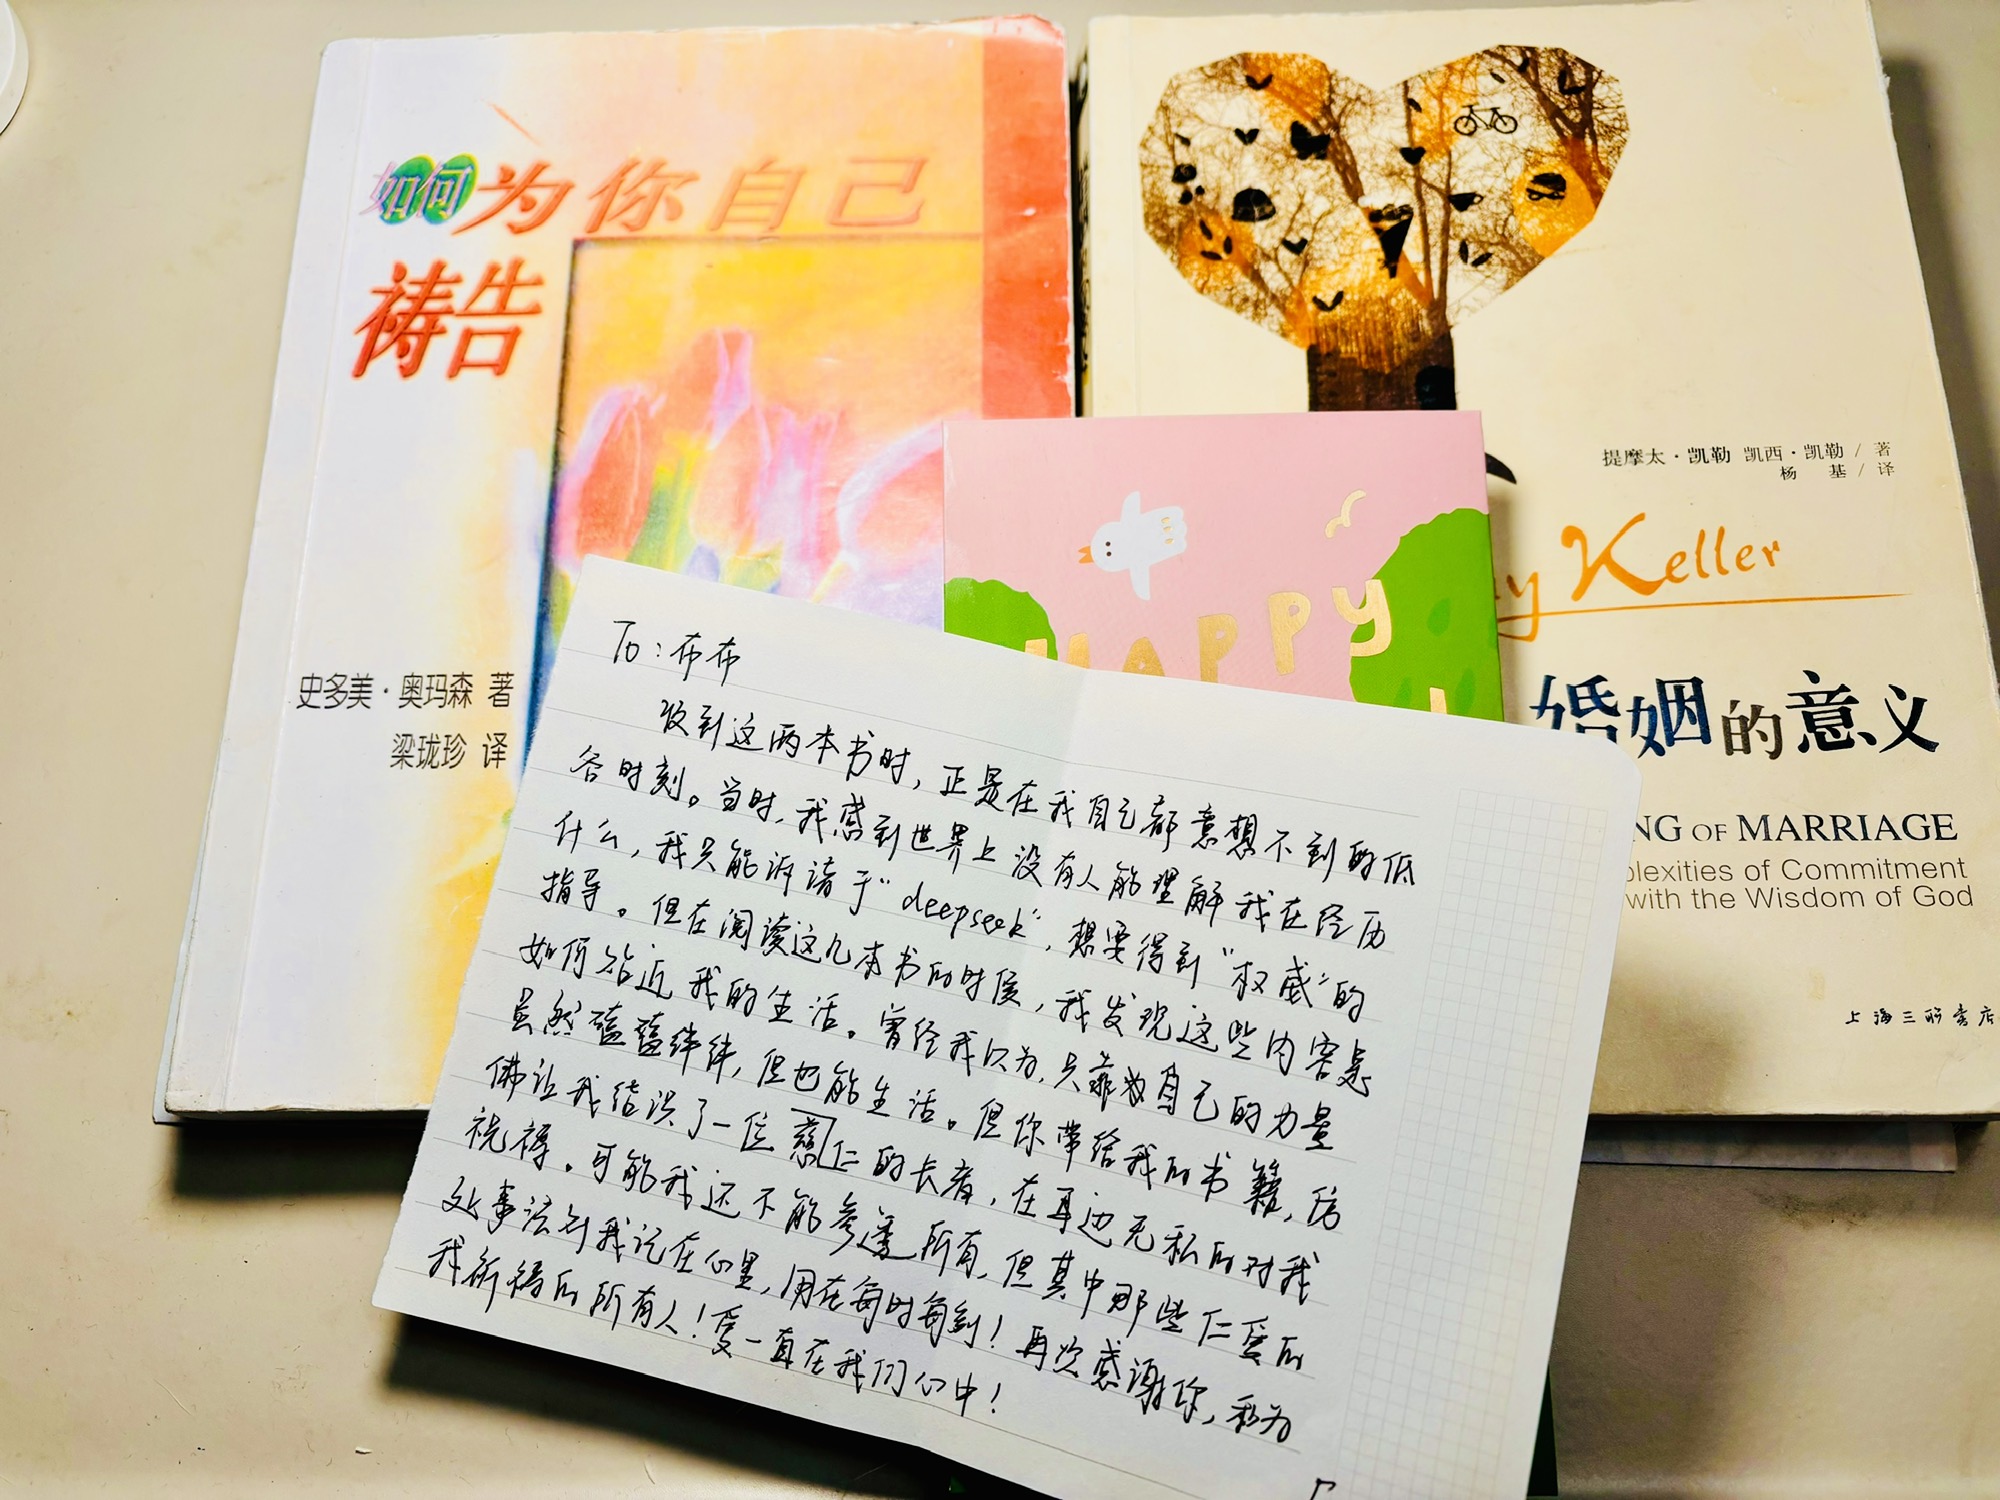 如何为你自己
祷告
史多美·奥玛森 著
梁珑珍 译
提摩太·凯勒 凯西·凯勒 / 著
杨 基 / 译
y Keller
婚姻的意义
NG OF MARRIAGE
plexities of Commitment
with the Wisdom of God
上海三联书店
HAPPY
To：布布
收到这两本书时，正是在我自己都意想不到的低
谷时刻。当时，我感到世界上没有人能理解我在经历
什么，我只能诉诸于“deepseek”，想要得到“权威”的
指导。但在阅读这几本书的时候，我发现这些内容是
如何贴近我的生活。曾经我以为，只靠我自己的力量
虽然磕磕绊绊，但也能生活。但你带给我的书籍，仿
佛让我结识了一位慈仁的长者，在耳边无私的对我
祝祷。可能我还不能参透所有，但其中那些仁爱的
处事法则我记在心里，用在每时每刻！再次感谢你，和为
我祈祷的所有人！爱一直在我们心中！